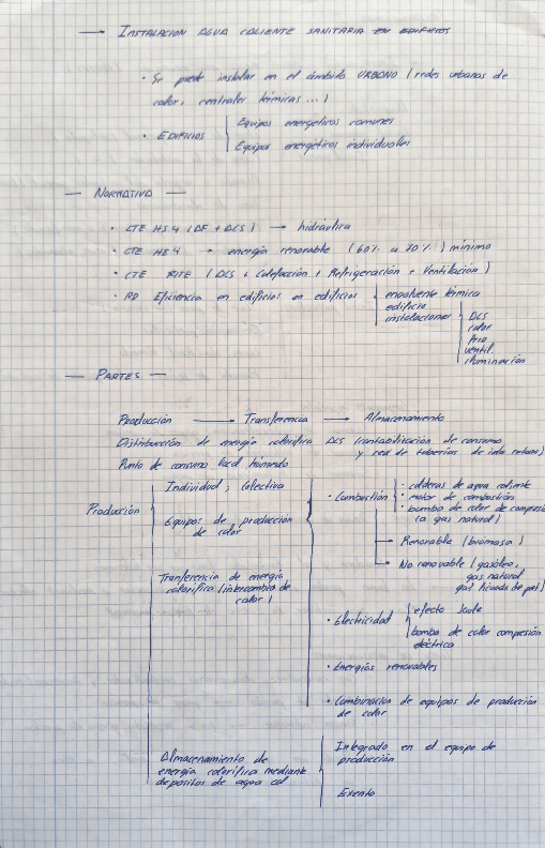 → INSTALACION AGUA CALIENTE SANITARIA EN EDIFICIOS
· Se puede instalar en el ámbito URBANO (redes urbanas de
calor, centrales térmicas ...)
· EDIFICIOS
Equipos energéticos comunes
Equipos energéticos individuales
— NORMATIVA —
· CTE HS4 (AF + ACS) → hidráulica
· CTE HE4 → energía renovable (60% a 70%) mínimo
· CTE RITE (ACS + Calefacción + Refrigeración + Ventilación)
· RD Eficiencia en edificios en edificios
envolvente térmica
edificio
instalaciones
ACS
calor
frío
ventil.
iluminación
— PARTES —
Producción → Transferencia → Almacenamiento
Distribución de energía calorífica ACS (contabilización de consumo
y red de tuberías de ida retorno)
Punto de consumo local húmedo
Producción
Individual; Colectiva
Equipos de producción
de calor
· Combustión
· calderas de agua caliente
· motor de combustión
· bomba de calor de compresión
(a gas natural)
→ Renovable (biomasa)
→ No renovable (gasóleo,
gas natural
gas licuado de pet)
· Electricidad
efecto Joule
bomba de calor compresión
eléctrica
· Energías renovables
· Combinación de equipos de producción
de calor
Tranferencia de energía
calorífica (intercambio de
calor)
Almacenamiento de
energía calorífica mediante
depositos de agua cal
Integrado en el equipo de
producción
Exento